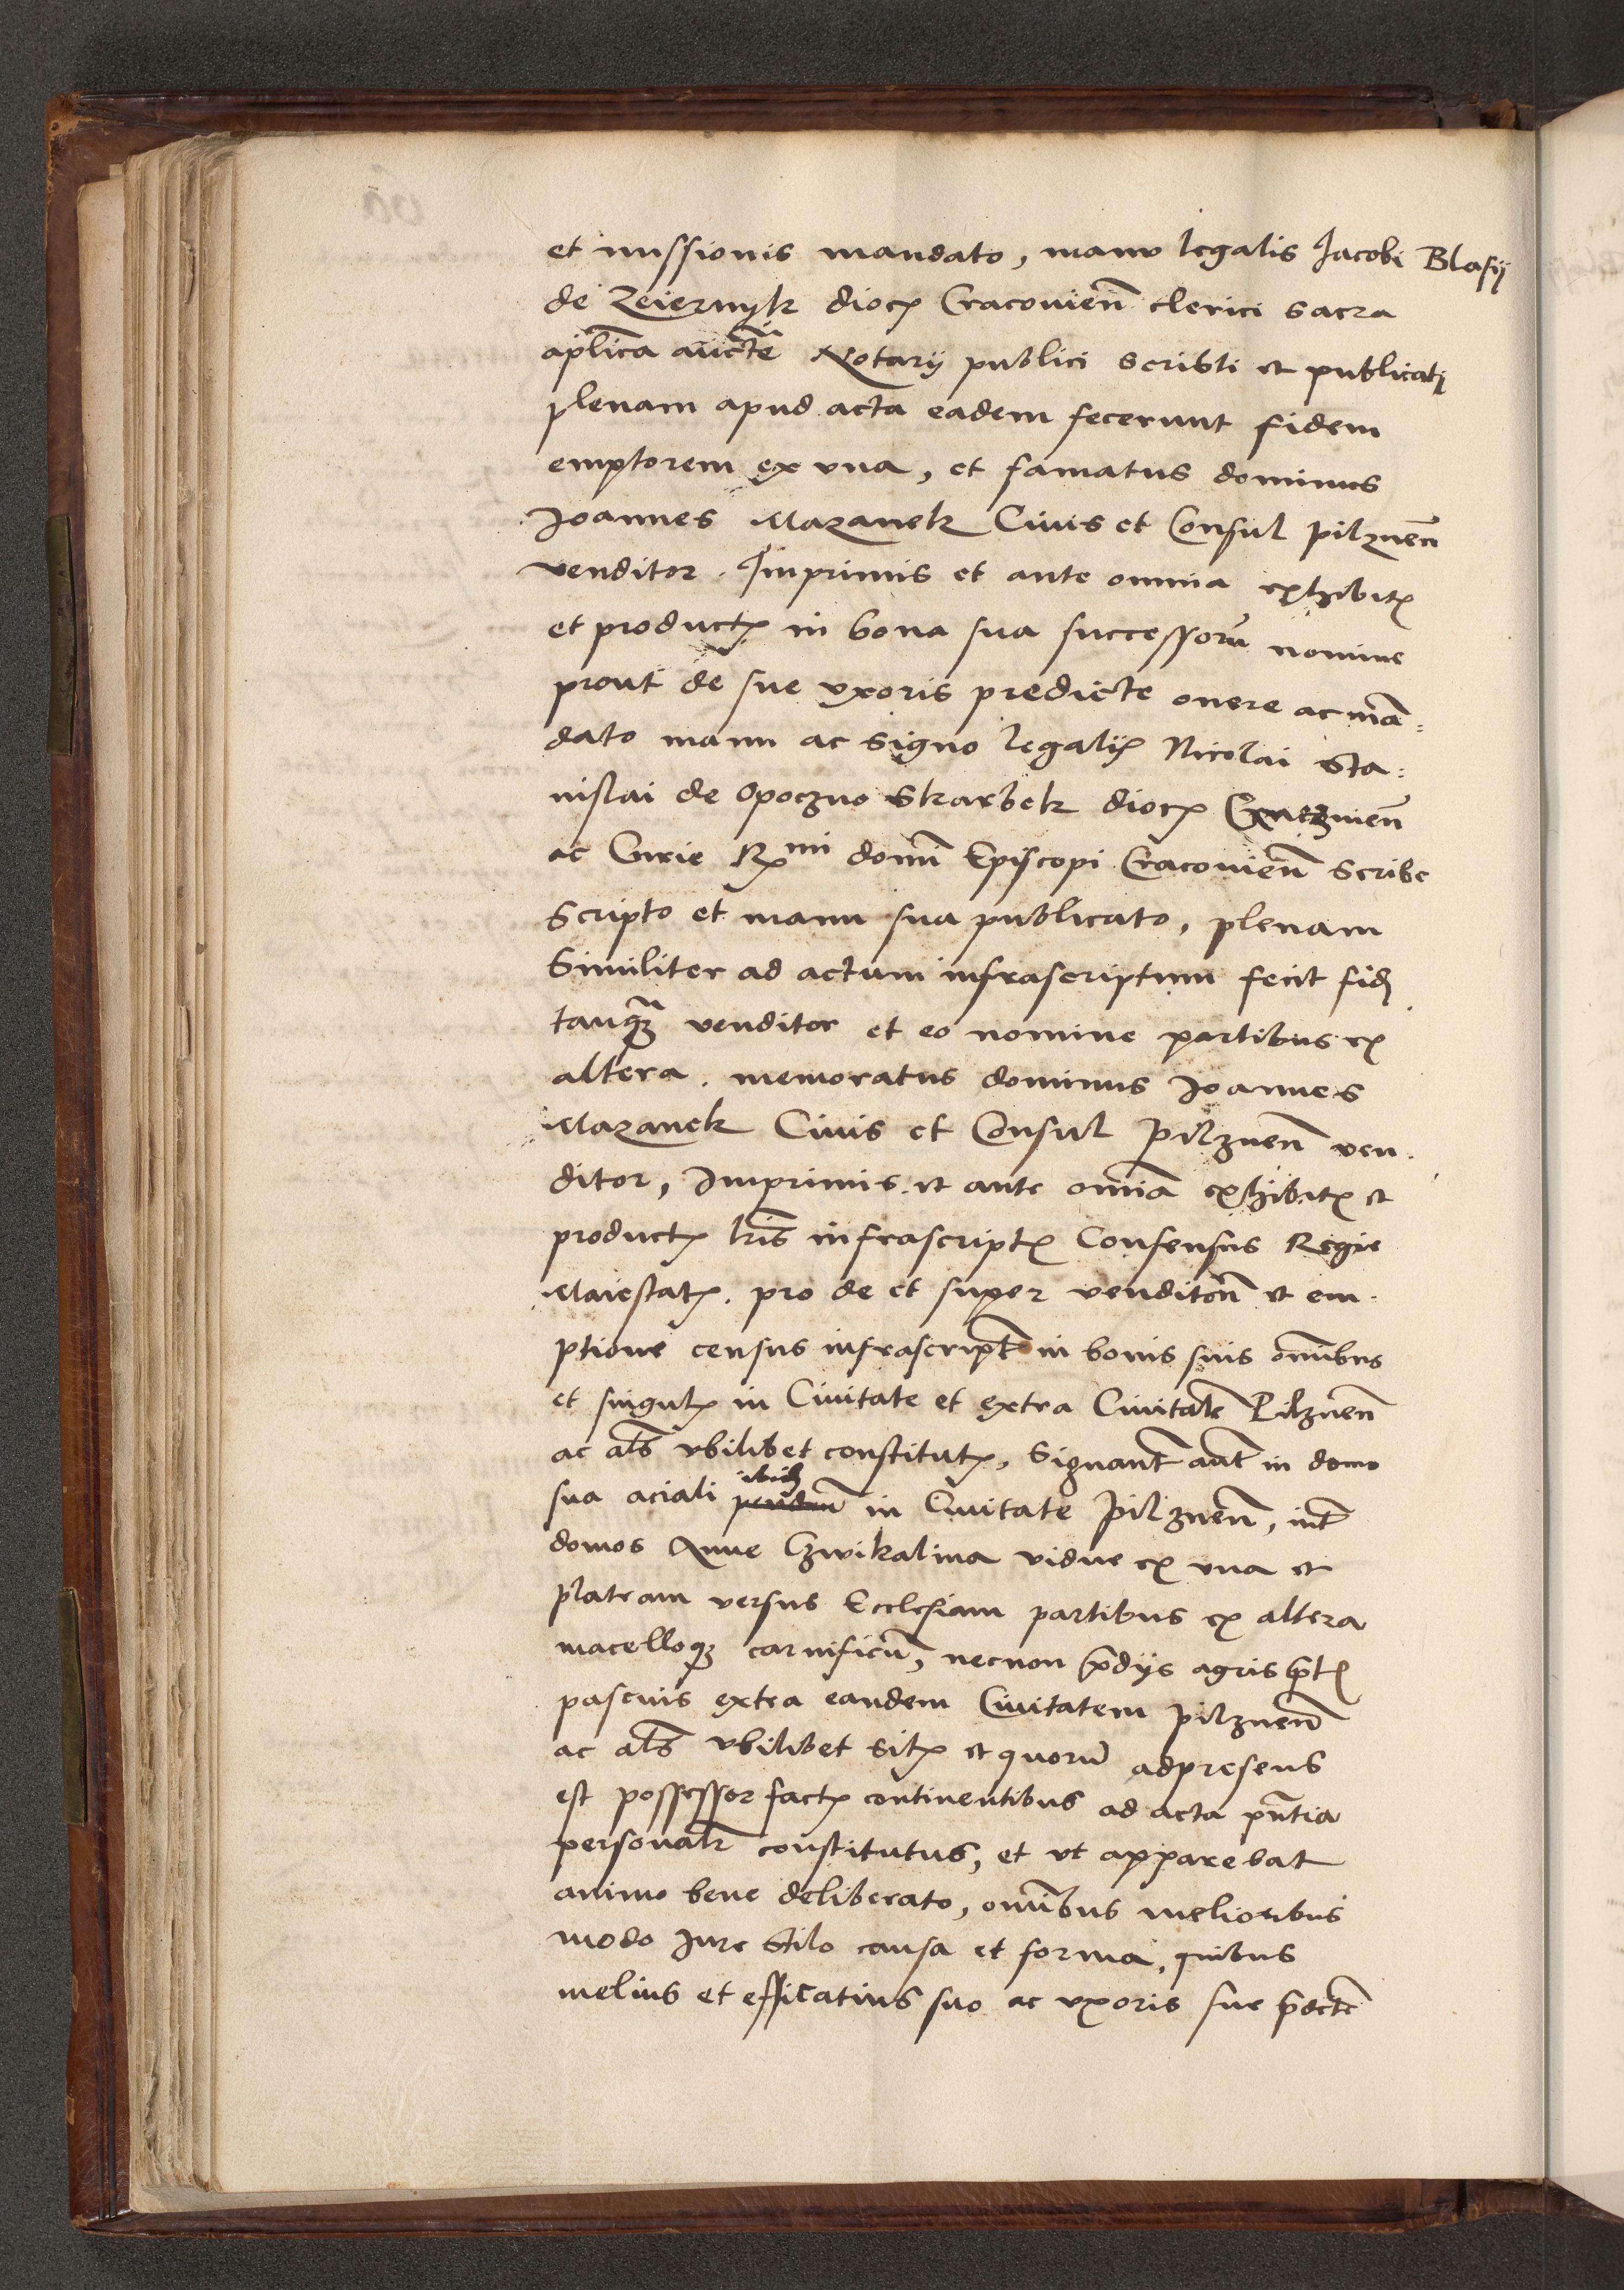 et missionis mandato, manu legalis Jacobi Blasij
de Zeiernyk dioc̄ Cracovien̄ clerici sacra
aplica aucte Notarij publici scribti et publicati
plenam apud acta eadem fecerunt fidem
emptorem ex vna, et famatus dominus
Joannes Mazanek Civis et Consul pilznen̄
venditor. Imprimis et ante omnia exhibitꝭ
et productꝭ in bona sua successorū nomine
prout de sue vxoris predicte onere ac mā:
dato manu ac signo legaliꝭ Nicolai Sta:
nislai de Opoczno Skarbek diocꝭ
ac Curie Rᵐⁱ domī Episcopi Cracovien̄ scribe
scripto et manu sua publicato, plenam
Similiter ad actum infrascriptum fecit fidꝭ
tanqꝫ venditor et eo nomine partibus ex
altera. memoratus dominus Joannes
Mazanek Civis et Consul pilznen̄ ven
ditor, Imprimis et ante omīa exhibitꝭ et
productꝭ lrīs infrascriptꝭ Consensus Regie
Maiestatꝭ. pro de et super venditōn et em
ptione census infrascript̄ in bonis suis omībus
et singulꝭ in Civitate et extra Civitatē Pilznen̄
ac al̄s vbilibet constitutꝭ, Signant̄ aut̄ in domo
sua aciali ibidꝫ in Civitate pilznen̄, int̄
domos Anne Czwikalina vidue ex vna et
plateam versus Ecclesiam partibus ex altera
macelloqꝫ carnificū, necnon p̄dijs agris p̄tꝭ
pascuis extra eandem Civitatem pilznen̄
ac al̄s vbilibet sitꝭ et quorū adpresens
est possessor factꝭ continentibus ad acta pn̄tia
personalr̄ constitutus, et vt apparebat
animo bene deliberato, omībus melioribus
modo Jure stilo causa et forma, quibus
melius et efficatius suo ac vxoris sue p̄dicte